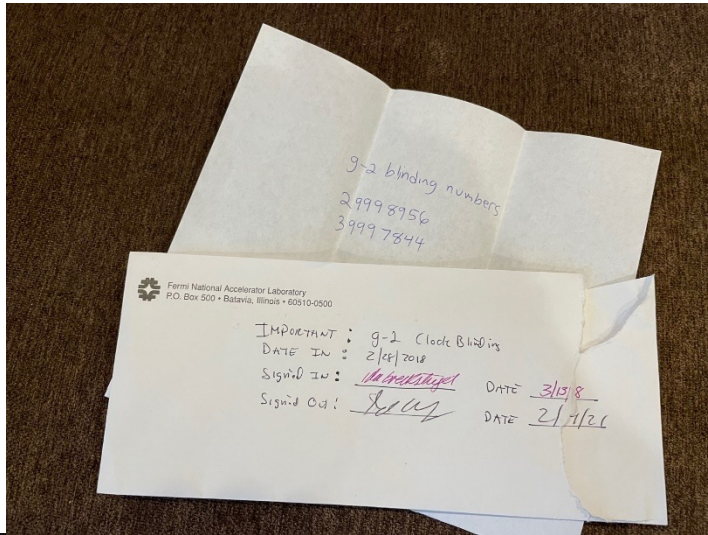 g-2 blinding numbers
29998956
39997844
Fermi National Accelerator Laboratory
P.O. Box 500 • Batavia, Illinois • 60510-0500
IMPORTANT : g-2 Clock Blinding
DATE IN : 2/28/2018
Signed IN : DATE 3/13/8
Signed Out : DATE